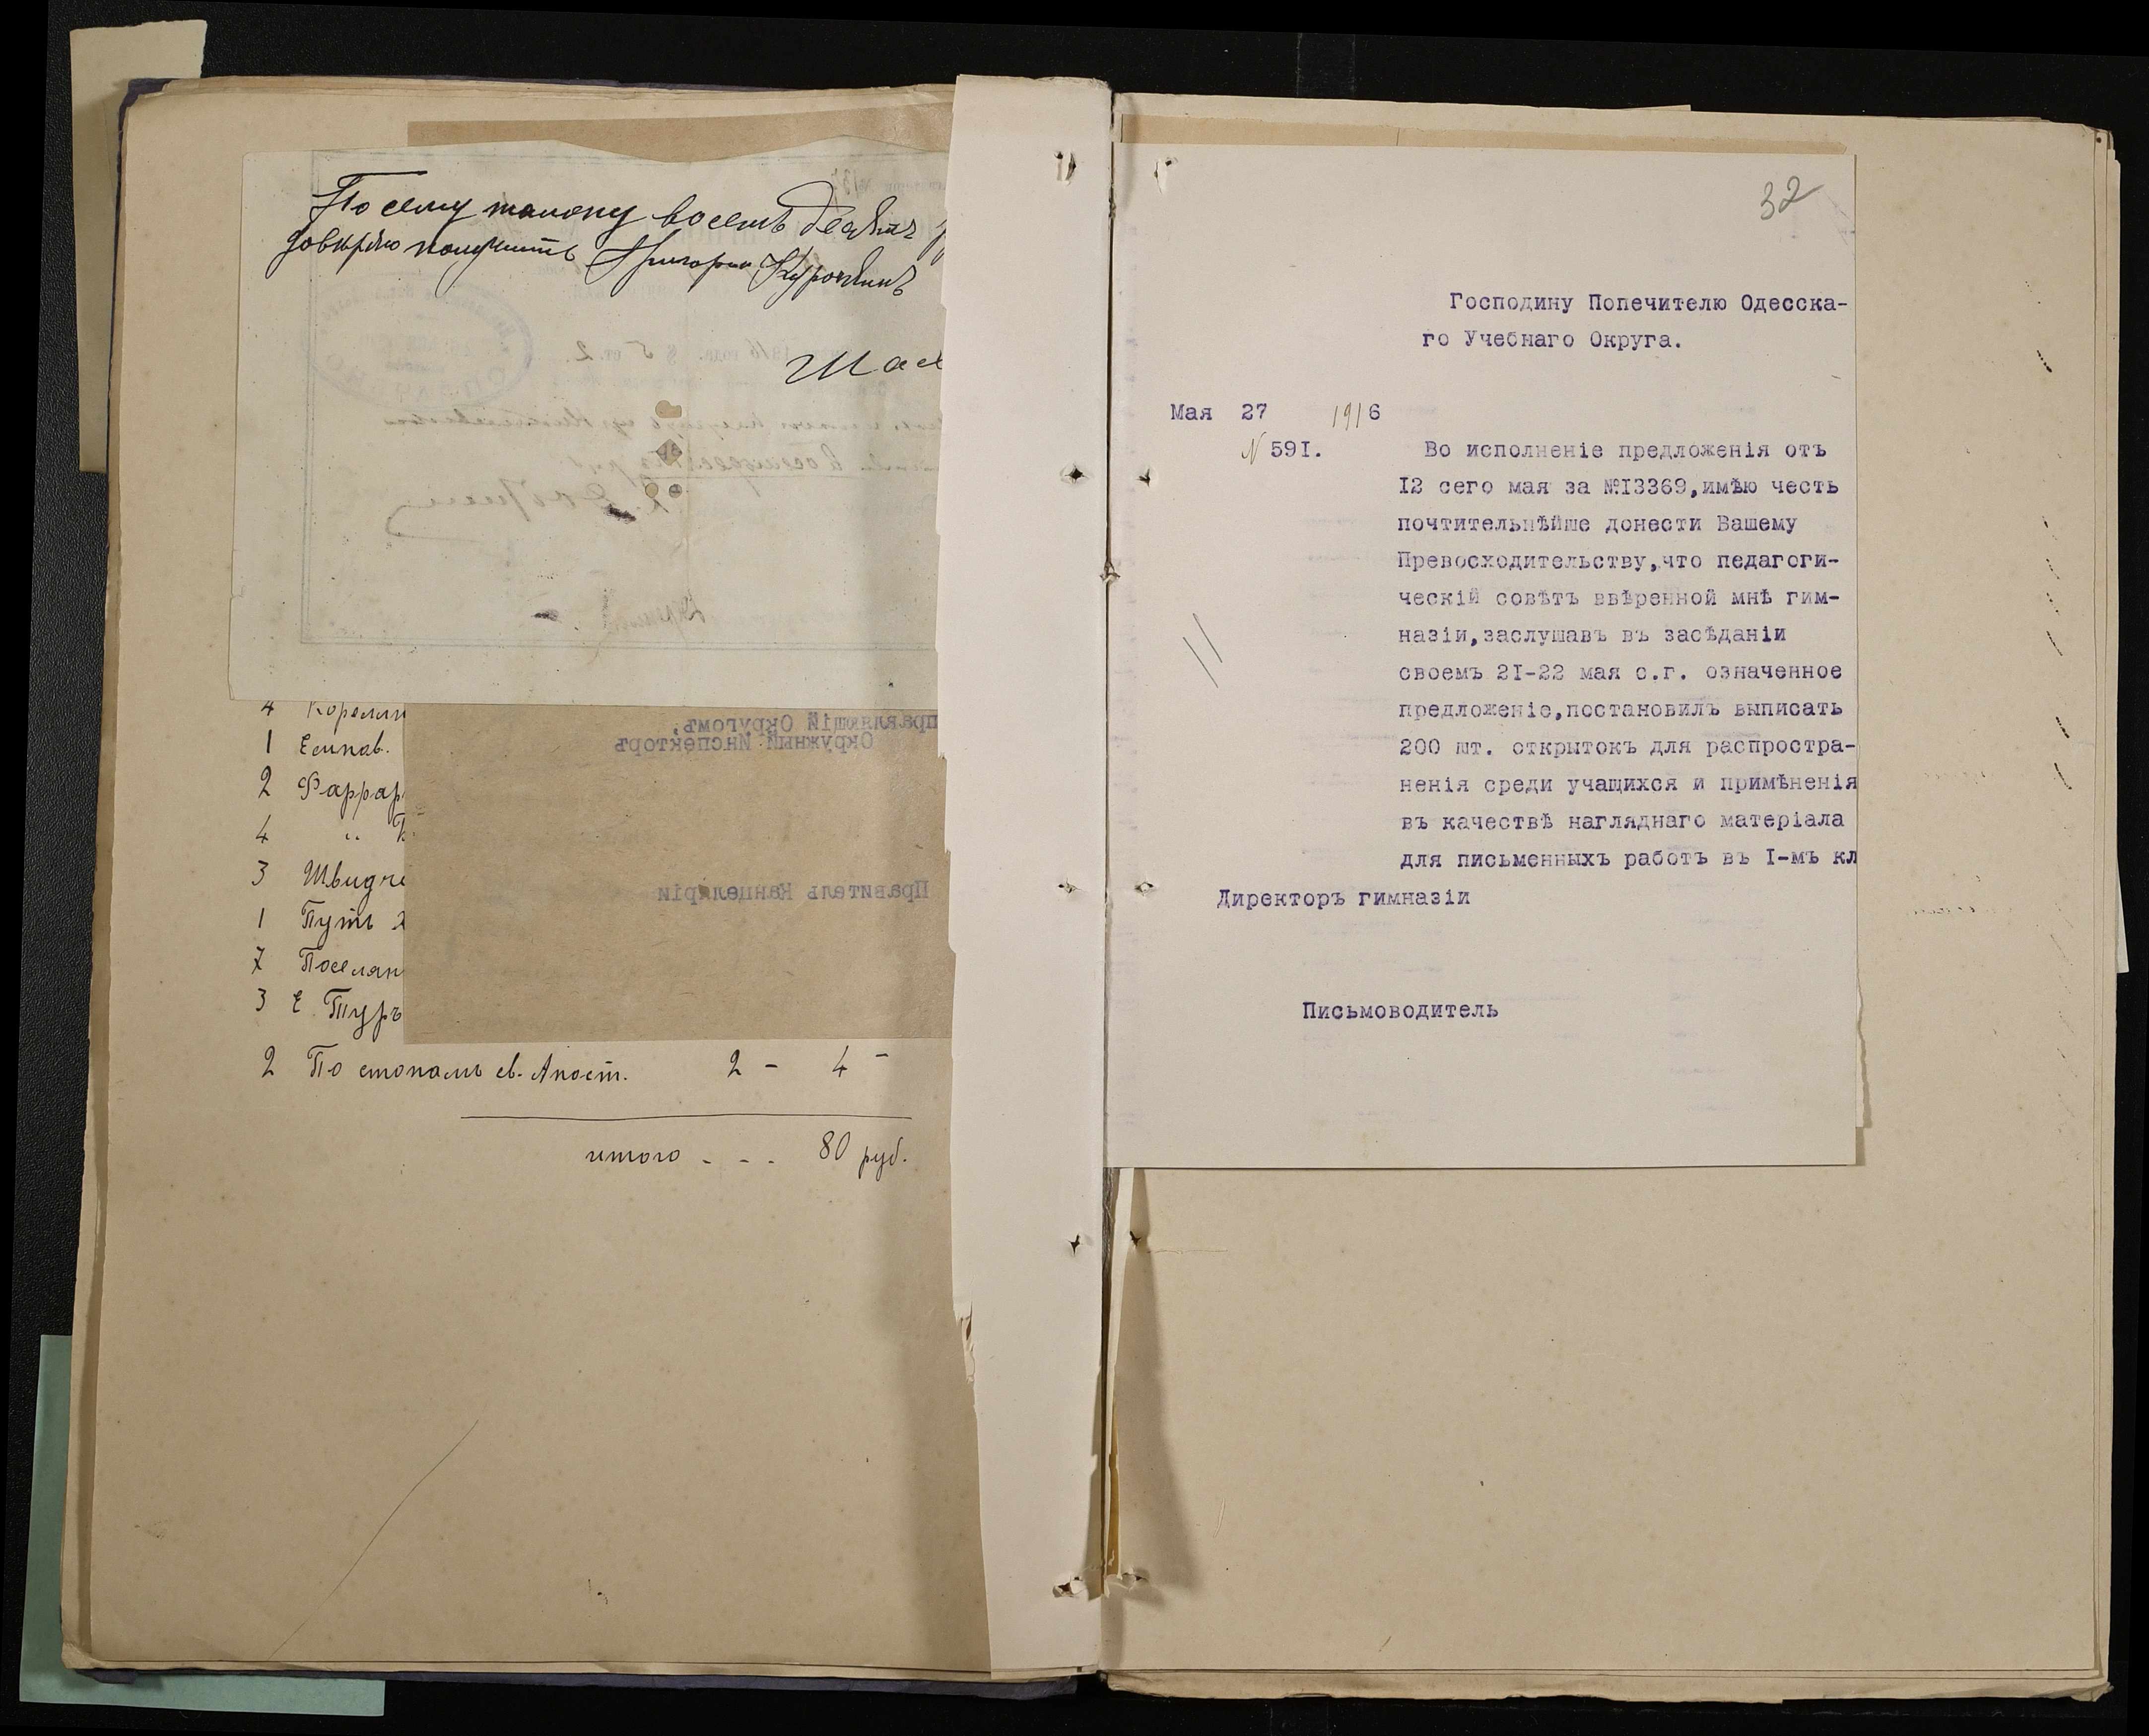 По сему талону восемьдесятъ
довѣряю получить Григорію Курочкинъ
Шах
4 Корелин
1 Еликав.
2 Фаррар
4 „
3 Швидче
1 Путь
7 Поселян
3 Е Туръ
Управляющій Округомъ,
Окружный Инспекторъ
Правитель Канцеляріи
2 По стопамъ св. Апост. 2 - 4 -
итого - - - 80 руб.
32
Господину Попечителю Одесска-
го Учебнаго Округа.
Мая 27 1916
№ 591.
Во исполненіе предложенія отъ
12 сего мая за №13369,имѣю честь
почтительнѣйше донести Вашему
Превосходительству,что педагоги-
ческій совѣтъ ввѣренной мнѣ гим-
назіи,заслушавъ въ засѣданіи
своемъ 21-22 мая с.г. означенное
предложеніе,постановилъ выписать
200 шт. открытокъ для распростра-
ненія среди учащихся и примѣненія
въ качествѣ нагляднаго матеріала
для письменныхъ работъ въ I-мъ кл
Директоръ гимназіи
Письмоводитель